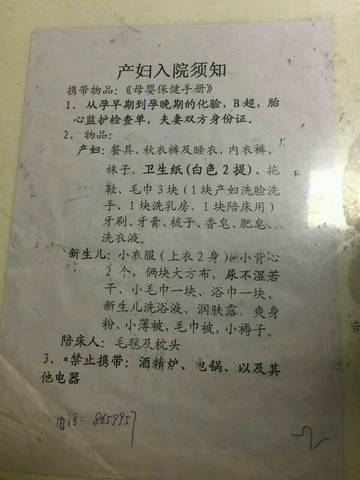 产妇入院须知
携带物品：《母婴保健手册》
1、从孕早期到孕晚期的化验，B超，胎
心监护检查单，夫妻双方身份证。
2、物品：
产妇：餐具，秋衣裤及睡衣，内衣裤、
袜子、卫生纸(白色2提)、拖
鞋、毛巾3块（1块产妇洗脸洗
手、1块洗乳房，1块陪床用）
牙刷、牙膏、梳子、香皂、肥皂、
洗衣液。
新生儿：小衣服（上衣2身）小背心
2个，俩块大方布，尿不湿若
干、小毛巾一块、浴巾一块、
新生儿洗浴液、润肤露、爽身
粉、小薄被，毛巾被，小褥子。
陪床人：毛毯及枕头
3、*禁止携带：酒精炉、电锅、以及其
他电器
电话：8659957